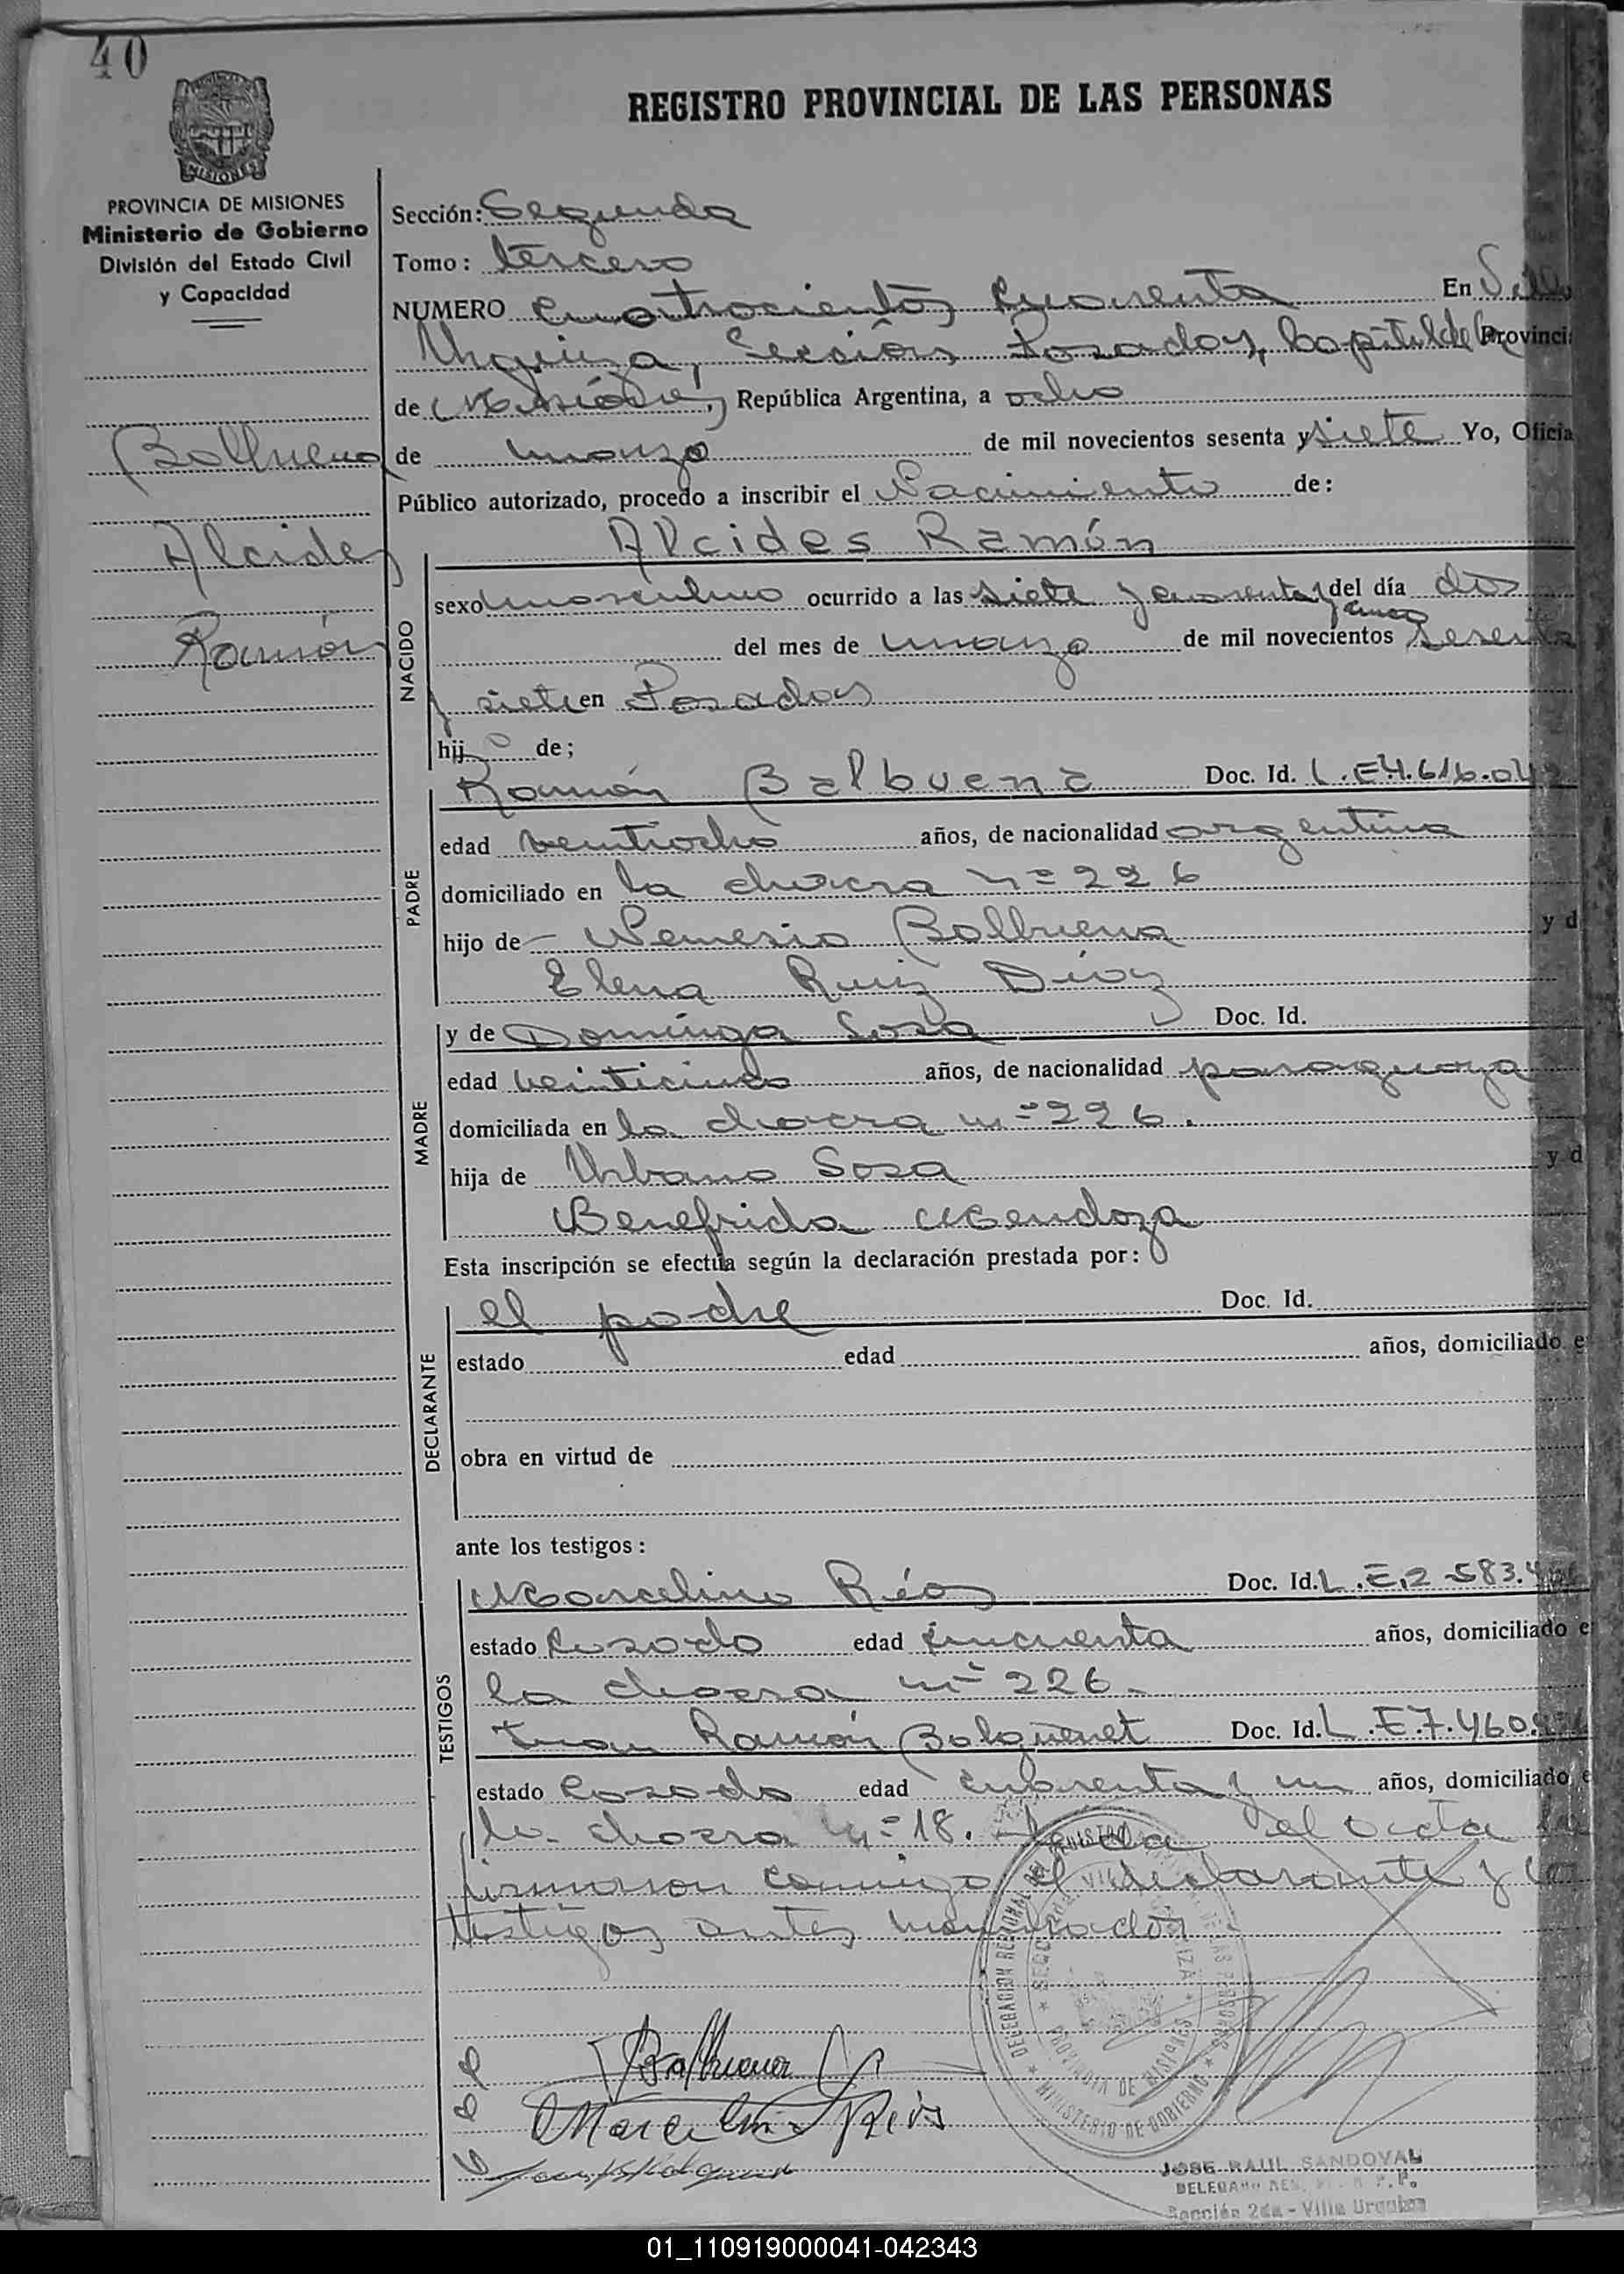 40
REGISTRO PROVINCIAL DE LAS PERSONAS
MISIONES
PROVINCIA DE MISIONES
Ministerio de Gobierno
División del Estado Civil
y Capacidad
Sección: Segunda
Tomo: tercero
NUMERO Cuatrocientos cuarenta En Villa
Urquiza, Sección Posadas, Capital de la Provinci
de Misiones, República Argentina, a ocho
de marzo de mil novecientos sesenta y siete Yo, Oficia
Balbuena
Público autorizado, procedo a inscribir el Nacimiento de:
Alcides
Ramón
Alcides Ramón
NACIDO
sexo masculino ocurrido a las siete y cuarenta y cinco del día dos
del mes de marzo de mil novecientos sesenta
y siete en Posadas
hijo de;
PADRE
Ramón Balbuena Doc. Id. L.E 4.616.04
edad veintiocho años, de nacionalidad argentina
domiciliado en la chacra nº 226
hijo de Nemesio Balbuena y d
Elena Ruiz Díaz
MADRE
y de Dominga Sosa Doc. Id.
edad veinticinco años, de nacionalidad paraguaya
domiciliada en la chacra nº 226.
hija de Urbano Sosa y d
Benefrida Mendoza
Esta inscripción se efectúa según la declaración prestada por:
DECLARANTE
el padre Doc. Id.
estado edad años, domiciliado e
obra en virtud de
ante los testigos:
TESTIGOS
Marcelino Ríos Doc. Id. L.E. 2.583.4
estado Casado edad cincuenta años, domiciliado e
la chacra nº 226.
Juan Ramón Doc. Id. L.E 7.460.
estado Casado edad cuarenta y un años, domiciliado e
la chacra nº 18. Leída el acta la
firmaron conmigo el declarante y los
testigos antes nombrados
Balbuena
Marcelino Ríos
DELEGACION REGIONAL DEL REGISTRO DE LAS PERSONAS
PROVINCIA DE MISIONES
MINISTERIO DE GOBIERNO
JOSE RAUL SANDOVAL
DELEGADO
Sección 2da - Villa Urquiza
01_110919000041-042343